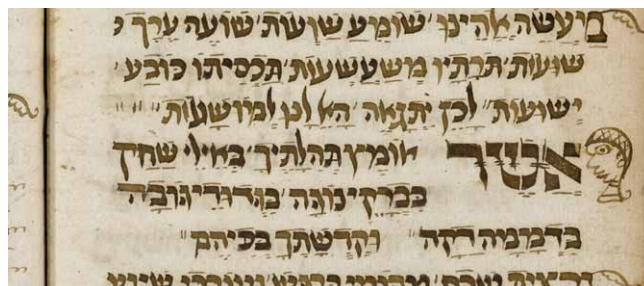 ביעשה אלהינו שומע שועות שועה ערך
שועות תרתין משעשעות תכסיתו כובע
ישועות לכן יתגאה האל למושעות
אשר אומץ תהלתיך באילי שחק
בברקי נוגה בגדודי גובה
בדממה דקה וקדשתך בפיהם